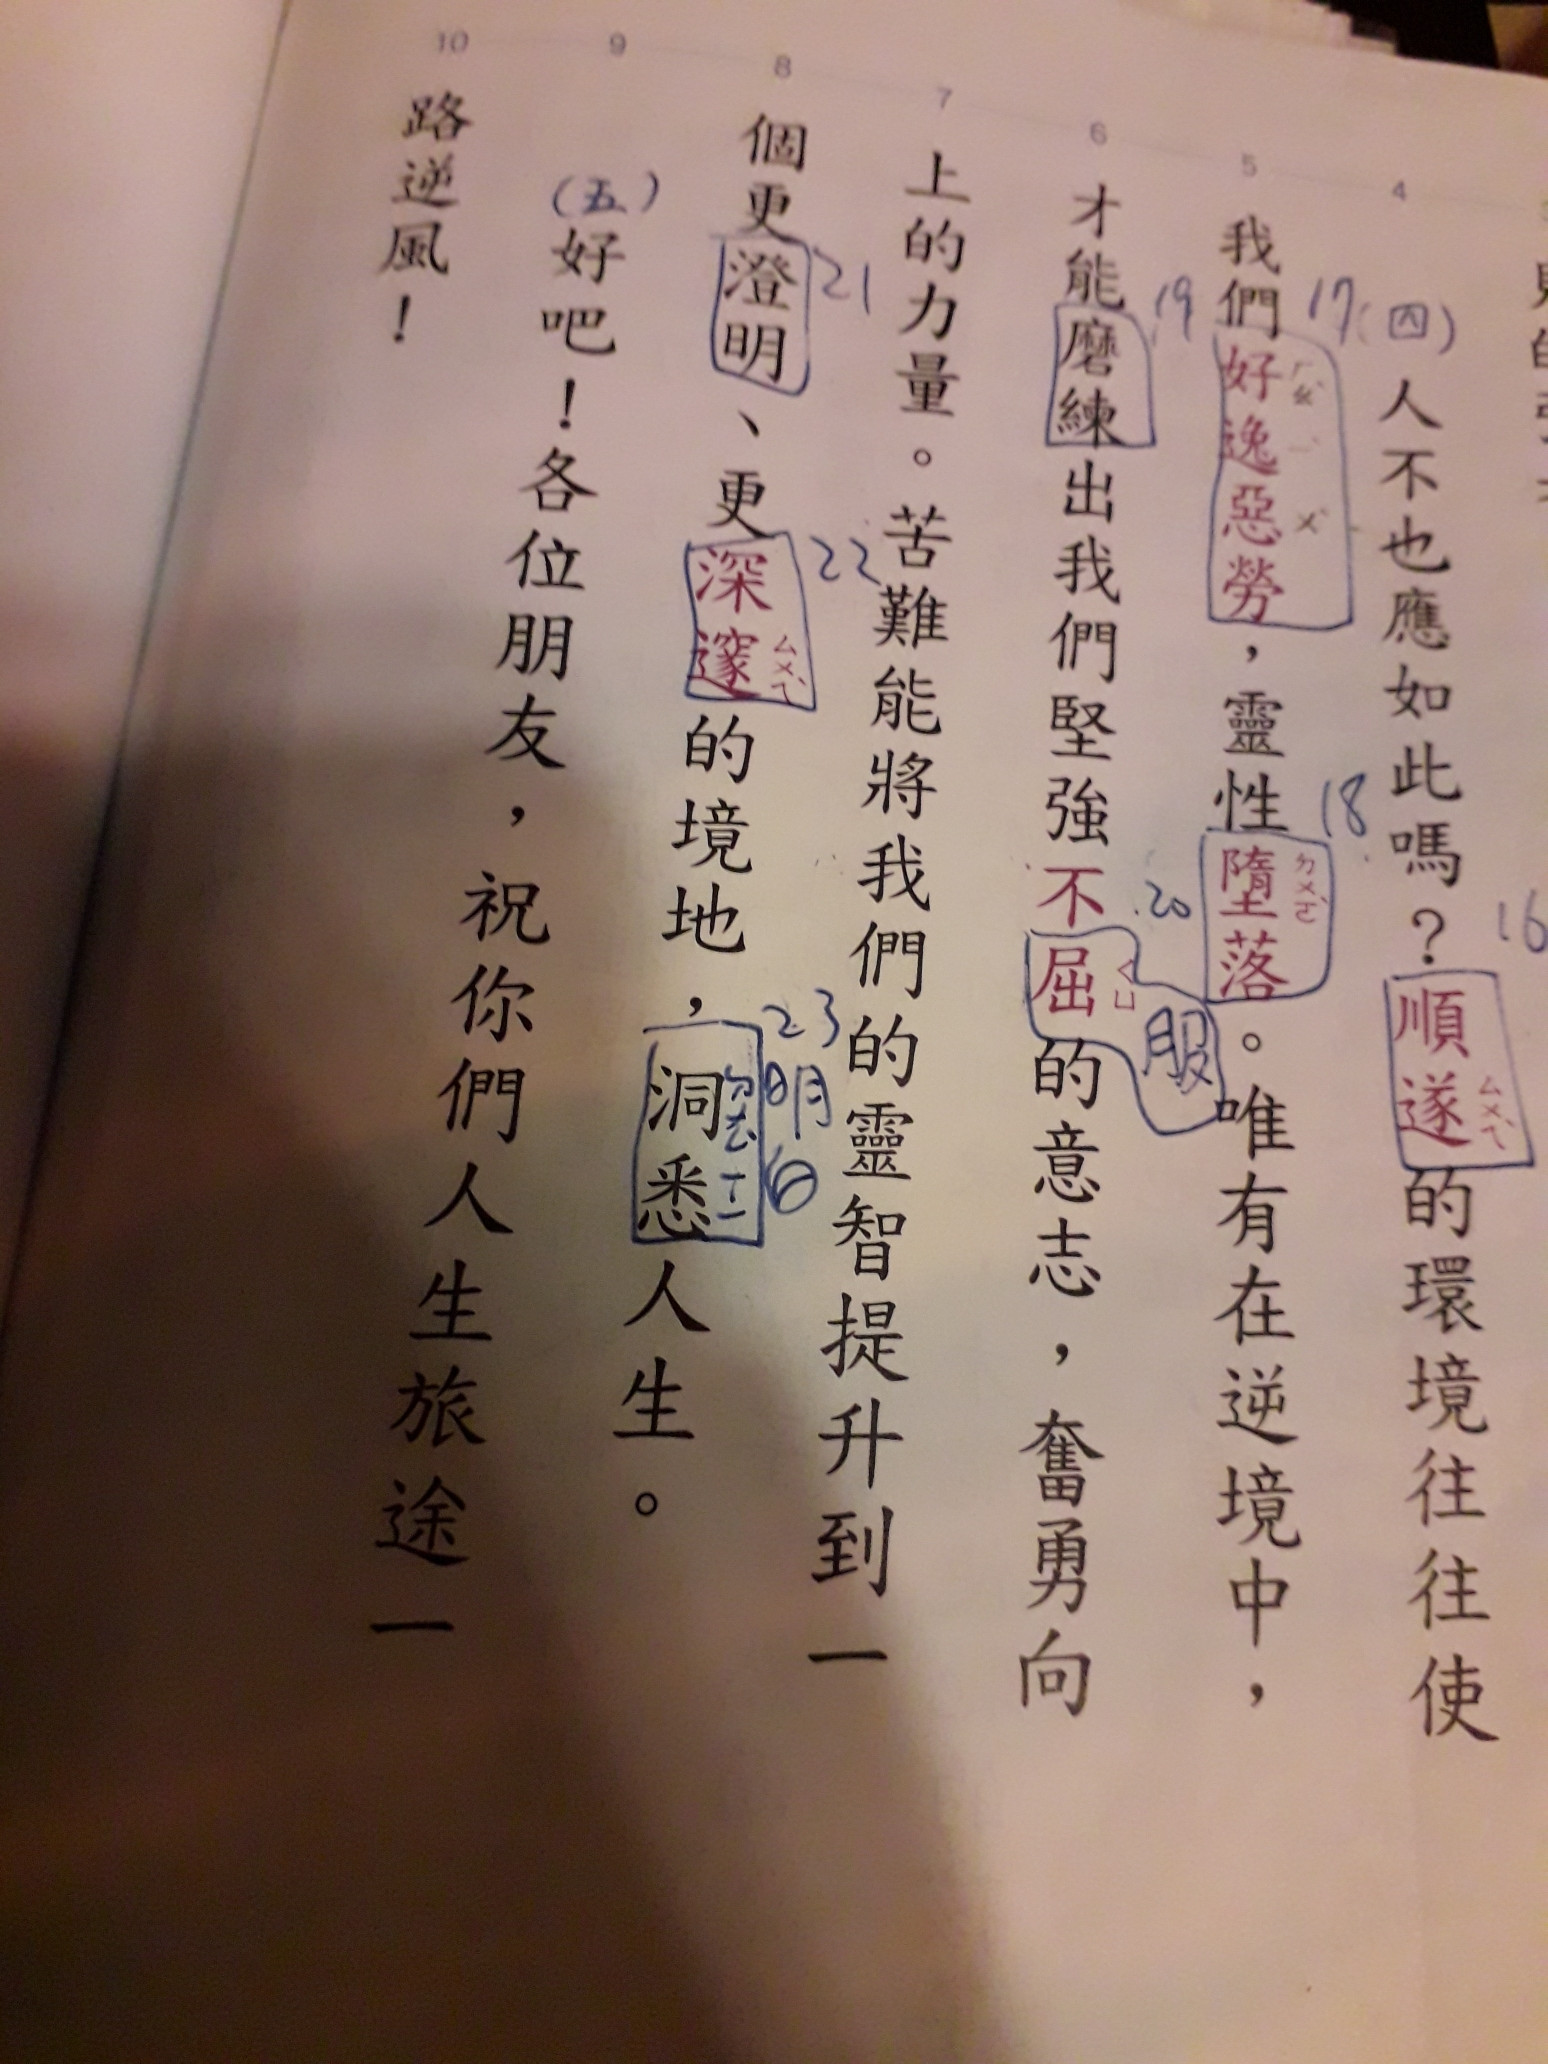 4
(四)人不也應如此嗎？順遂的環境往往使
ㄙㄨㄟˋ
16
5
我們好逸惡勞，靈性墮落。唯有在逆境中，
ㄏㄠˋ
ㄧˋ
ㄨˋ
ㄉㄨㄛˋ
17
18
6
才能磨練出我們堅強不屈的意志，奮勇向
ㄑㄩ
19
20
服
7
上的力量。苦難能將我們的靈智提升到一
8
個更澄明、更深邃的境地，洞悉人生。
ㄙㄨㄟˋ
21
22
23
明白
9
(五)好吧！各位朋友，祝你們人生旅途一
10
路逆風！